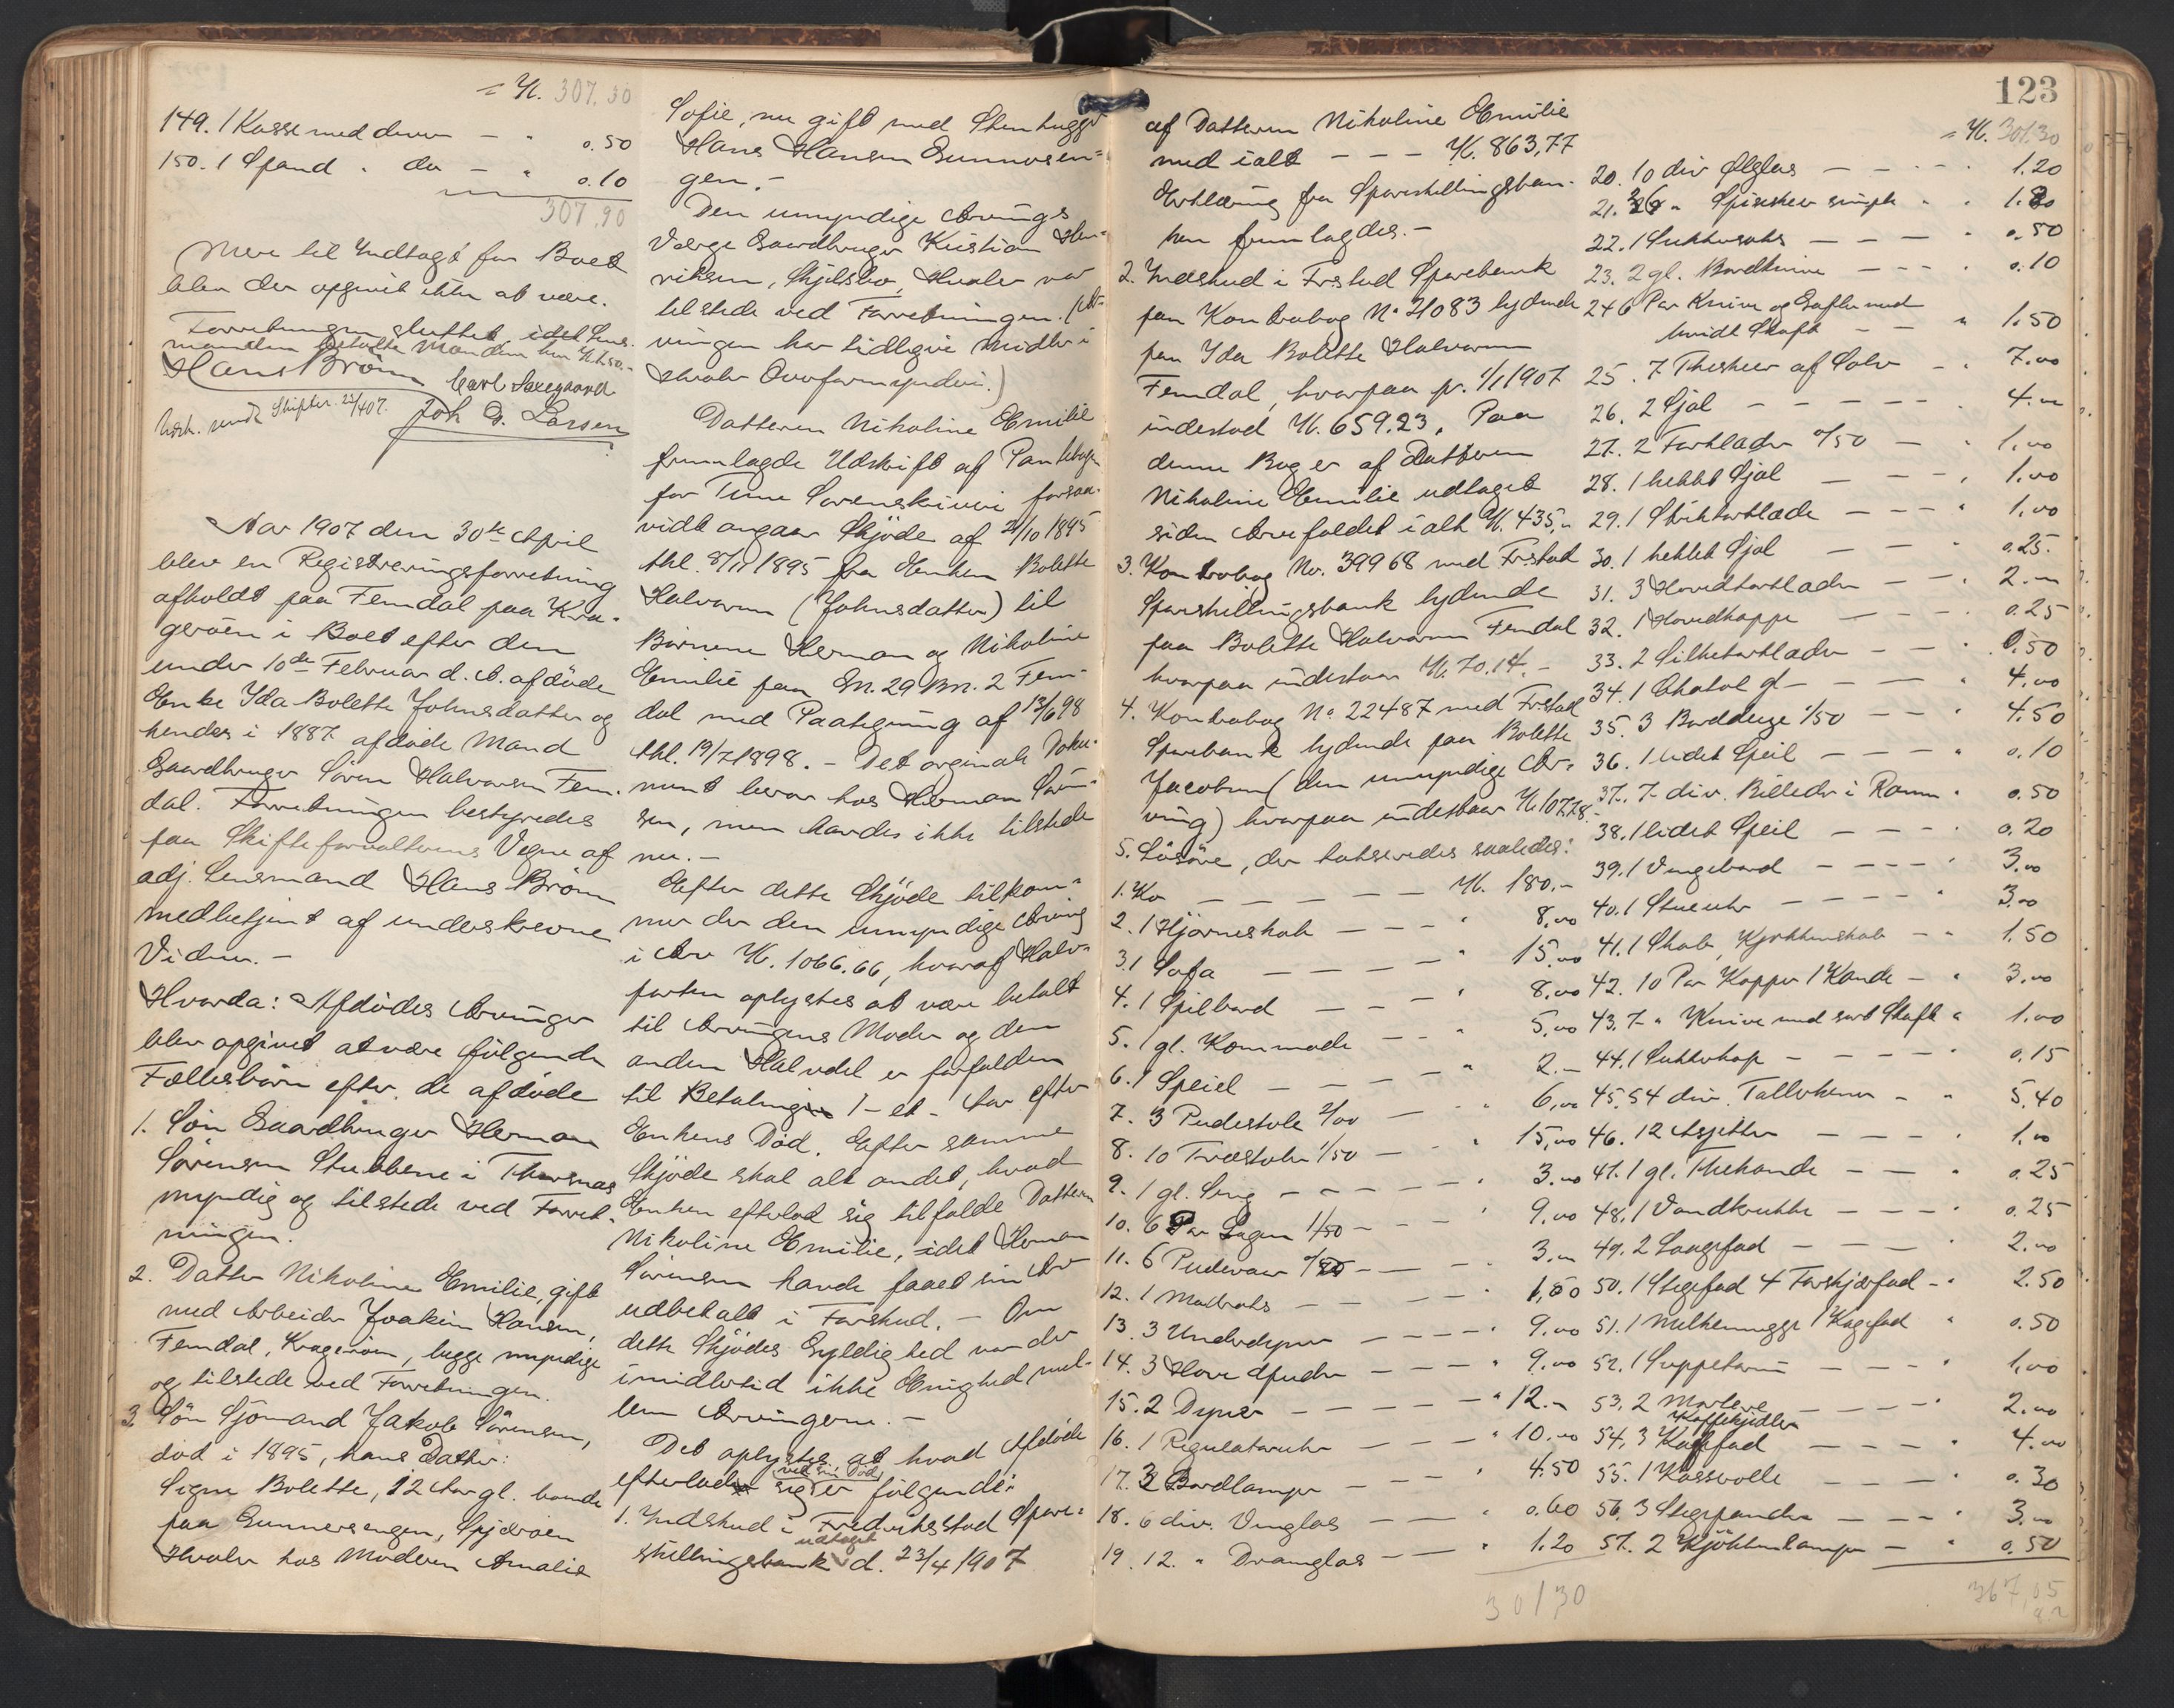 = Kr. 307.30
149. 1 Kasse med diverse — " 0.50
150. 1 Spand " do — " 0.10
307.90
Mere til Indtægt for Boet
blev der opgivet ikke at være.
Forretningen sluttet, idet Lens-
manden
Hans Brøm Carl Saxegaard
Joh G. Larsen
Aar 1907 den 30te April
blev en Registreringsforretning
afholdt paa Femdal paa Kra-
gerøen i Boet efter den
under 10de Februar d. A. afdøde
Enke Ida Bolette Johnsdatter og
hendes i 1887 afdøde Mand
Gaardbruger Søren Halvorsen Fem-
dal. Forretningen bestyredes
paa Skifteforvalterens Vegne af
adj. Lensmand Hans Brøm
medbetjent af underskrevne
Vidner. —
Hvorda: Afdødes Arvinger
blev opgivet at være følgende
Fællesbørn efter de afdøde
1. Søn Gaardbruger Herman
Sørensen Stubbene i Thorsnæs
myndig og tilstede ved Forret-
ningen.
2. Datter Nikoline Emilie, gift
med Arbeider Joakim Hansen,
Femdal, Kragerøen, begge myndige
og tilstede ved Forretningen.
3. Søn Sjømand Jakob Sørensen,
død i 1895, hans Datter:
Signe Bolette, 12 Aar gl. boende
paa Gunnersengen, Spjærøen
Hvaler hos Moderen Amalie
Sofie, nu gift med Stenhugger
Hans Hansen Gunnersen-
gen. —
Den umyndige Arvings
Værge Gaardbruger Kristian Hen-
riksen, Skjelsbo, Hvaler var
tilstede ved Forretningen. (Ar-
vingen har tidligere Midler i
Hvaler Overformynderi.)
Datteren Nikoline Emilie
fremlagde Udskrift af Pantebogen
for Tune Sorenskriveri forsaa-
vidt angaar Skjøde af 21/10 1895
thl. 8/11 1895 fra Enken Bolette
Halvorsen (Johnsdatter) til
Børnene Herman og Nikoline
Emilie paa Gn. 29 Bn. 2 Fem-
dal med Paategning af 13/6 98
thl. 19/7 1898. — Det orginale Doku-
ment beror hos Herman Søren-
sen, men havdes ikke tilstede
nu. —
Efter dette Skjøde tilkom-
mer der den umyndige Arving
i Arv Kr. 1066.66, hvoraf Halv-
parten oplystes at være betalt
til Arvingens Moder og den
anden Halvdel er forfalden
til Betaling 1 - et - Aar efter
Enkens Død. Efter samme
Skjøde skal alt andet, hvad
Enken efterlod sig tilfalde Datteren
Nikoline Emilie, idet Herman
Sørensen havde faaet sin Arv
udbetalt i Forskud. — Om
dette Skjødes Gyldighed var der
imidlertid ikke Enighed mel-
lem Arvingerne. —
Det oplystes at hvad Afdøde
ved sin Død
efterlod sig er følgende:
1. Indskud i Frederikstad Spare-
udtaget
skillingsbank d. 23/4 1907
123
af Datteren Nikoline Emilie
med ialt — — — Kr. 863,77
Erklæring fra Spareskillingsban-
ken fremlagdes. —
2. Indskud i Frstad Sparebank
paa Kontrabog No 21083 lydende
paa Ida Bolette Halvorsen
Femdal, hvorpaa pr. 1/1 1907
indestod Kr. 659.23. Paa
denne Bog er af Datteren
Nikoline Emilie udtaget
siden Arvefaldet ialt Kr. 435,-
3. Kontrabog No. 39968 med Frstad
Spareskillingsbank lydende
paa Bolette Halvorsen Femdal
hvorpaa indestaar Kr. 70.14. —
4. Kontrabog No 22487 med Frstad
Sparebank lydende paa Bolette
Jacobsen (den umyndige Ar-
ving) hvorpaa indestaar Kr. 107,28.
5. Løsøre, der takseredes saaledes:
1. Ko — — — — Kr. 180.-
2. 1 Hjørneskab — — — " 8,00
3. 1 Sofa — — — — " 15,00
4. 1 Spilbord — — — " 8,00
5. 1 gl. Kommode — — " 5,00
6. 1 Speiel — — — — " 2.-
7. 3 Pudestole 2/00 — " 6,00
8. 10 Træstoler 1/50 — " 15,00
9. 1 gl. Seng — — — — " 3.00
10. 6 Par Lagen 1/50 — — — " 9,00
11. 6 Pudevaar — — — " 3.-
12. 1 Madrats — — — — " 1,50
13. 3 Underdyner — — — — " 9,00
14. 3 Hovedpuder — — — — " 9,00
15. 2 Dyner — — — — — " 12.-
16. 1 Regulatoruhr — — — " 10.00
17. 3 Bordlamper — — " 4.50
18. 6 div. Vinglas — — " 0.60
19. 12 " Dramglas — — " 1.20
301,30
= Kr. 301.30
20. 10 div Ølglas — — — " 1.20
21. " Spiseskeer simple " " 1.20
22. 1 Sukkersaks — — — " 0.50
23. 2 gl. Bordknive — — — " 0.10
24. 6 Par Knive og Gafler med
hvidt Skaft — — " 1.50
25. 7 Theskeer af Sølv — " 7.00
26. 2 Sjal — — — — — " 4.-
27. 2 Forklæder 0/50 — " 1,00
28. 1 heklet Sjal — — — " 1.00
29. 1 Strikforklæde — — — " 1,00
30. 1 heklet Sjal — — — " 0.25.
31. 3 Hovedtørklæder — — " 2.-
32. 1 Hovedkappe — — — " 0.25
33. 2 Silketørklæder — — " 0.50
34. 1 Chatol gl — — — — " 4.00
35. 3 Bordduge 1/50 — — " 4.50
36. 1 lidet Speil — — — — " 0.10
37. 7 div. Billeder i Ramm " 0.50
38. 1 lidet Speil — — — — " 0.20
39. 1 Vngebord — — — — " 3.00
40. 1 Stueuhr — — — — — " 3.00
41. 1 Skab, Kjøkkenskab — " 1.50
42. 10 Par Kopper 1 Kande — " 3.00
43. 7 " Knive med sort Skaft " 1.00
44. 1 Sukkerkop — — — — " 0.15
45. 54 div. Tallerkener — " 5.40
46. 12 Asjetter — — — — " 1.00
47. 1 gl. Thekande — — — " 0.25
48. 1 Vandkrukke — — — " 0.25
49. 2 Laagefad — — — — " 2.00
50. 1 Stegefad 4 Forskjærfad — " 2.50
51. 1 Melkemugge 1 Kagefad " 0.50
52. 1 Suppeterrin — — — " 1,00
53. 2 Mortere — — — — " 2.00
Kaffekjedler
54. 3 — — — " 4.00
55. 1 — — — " 0.30
56. 3 Stegepander — — — " 3.00
57. 2 Kjøkkenlamper — " 0.50
367,05